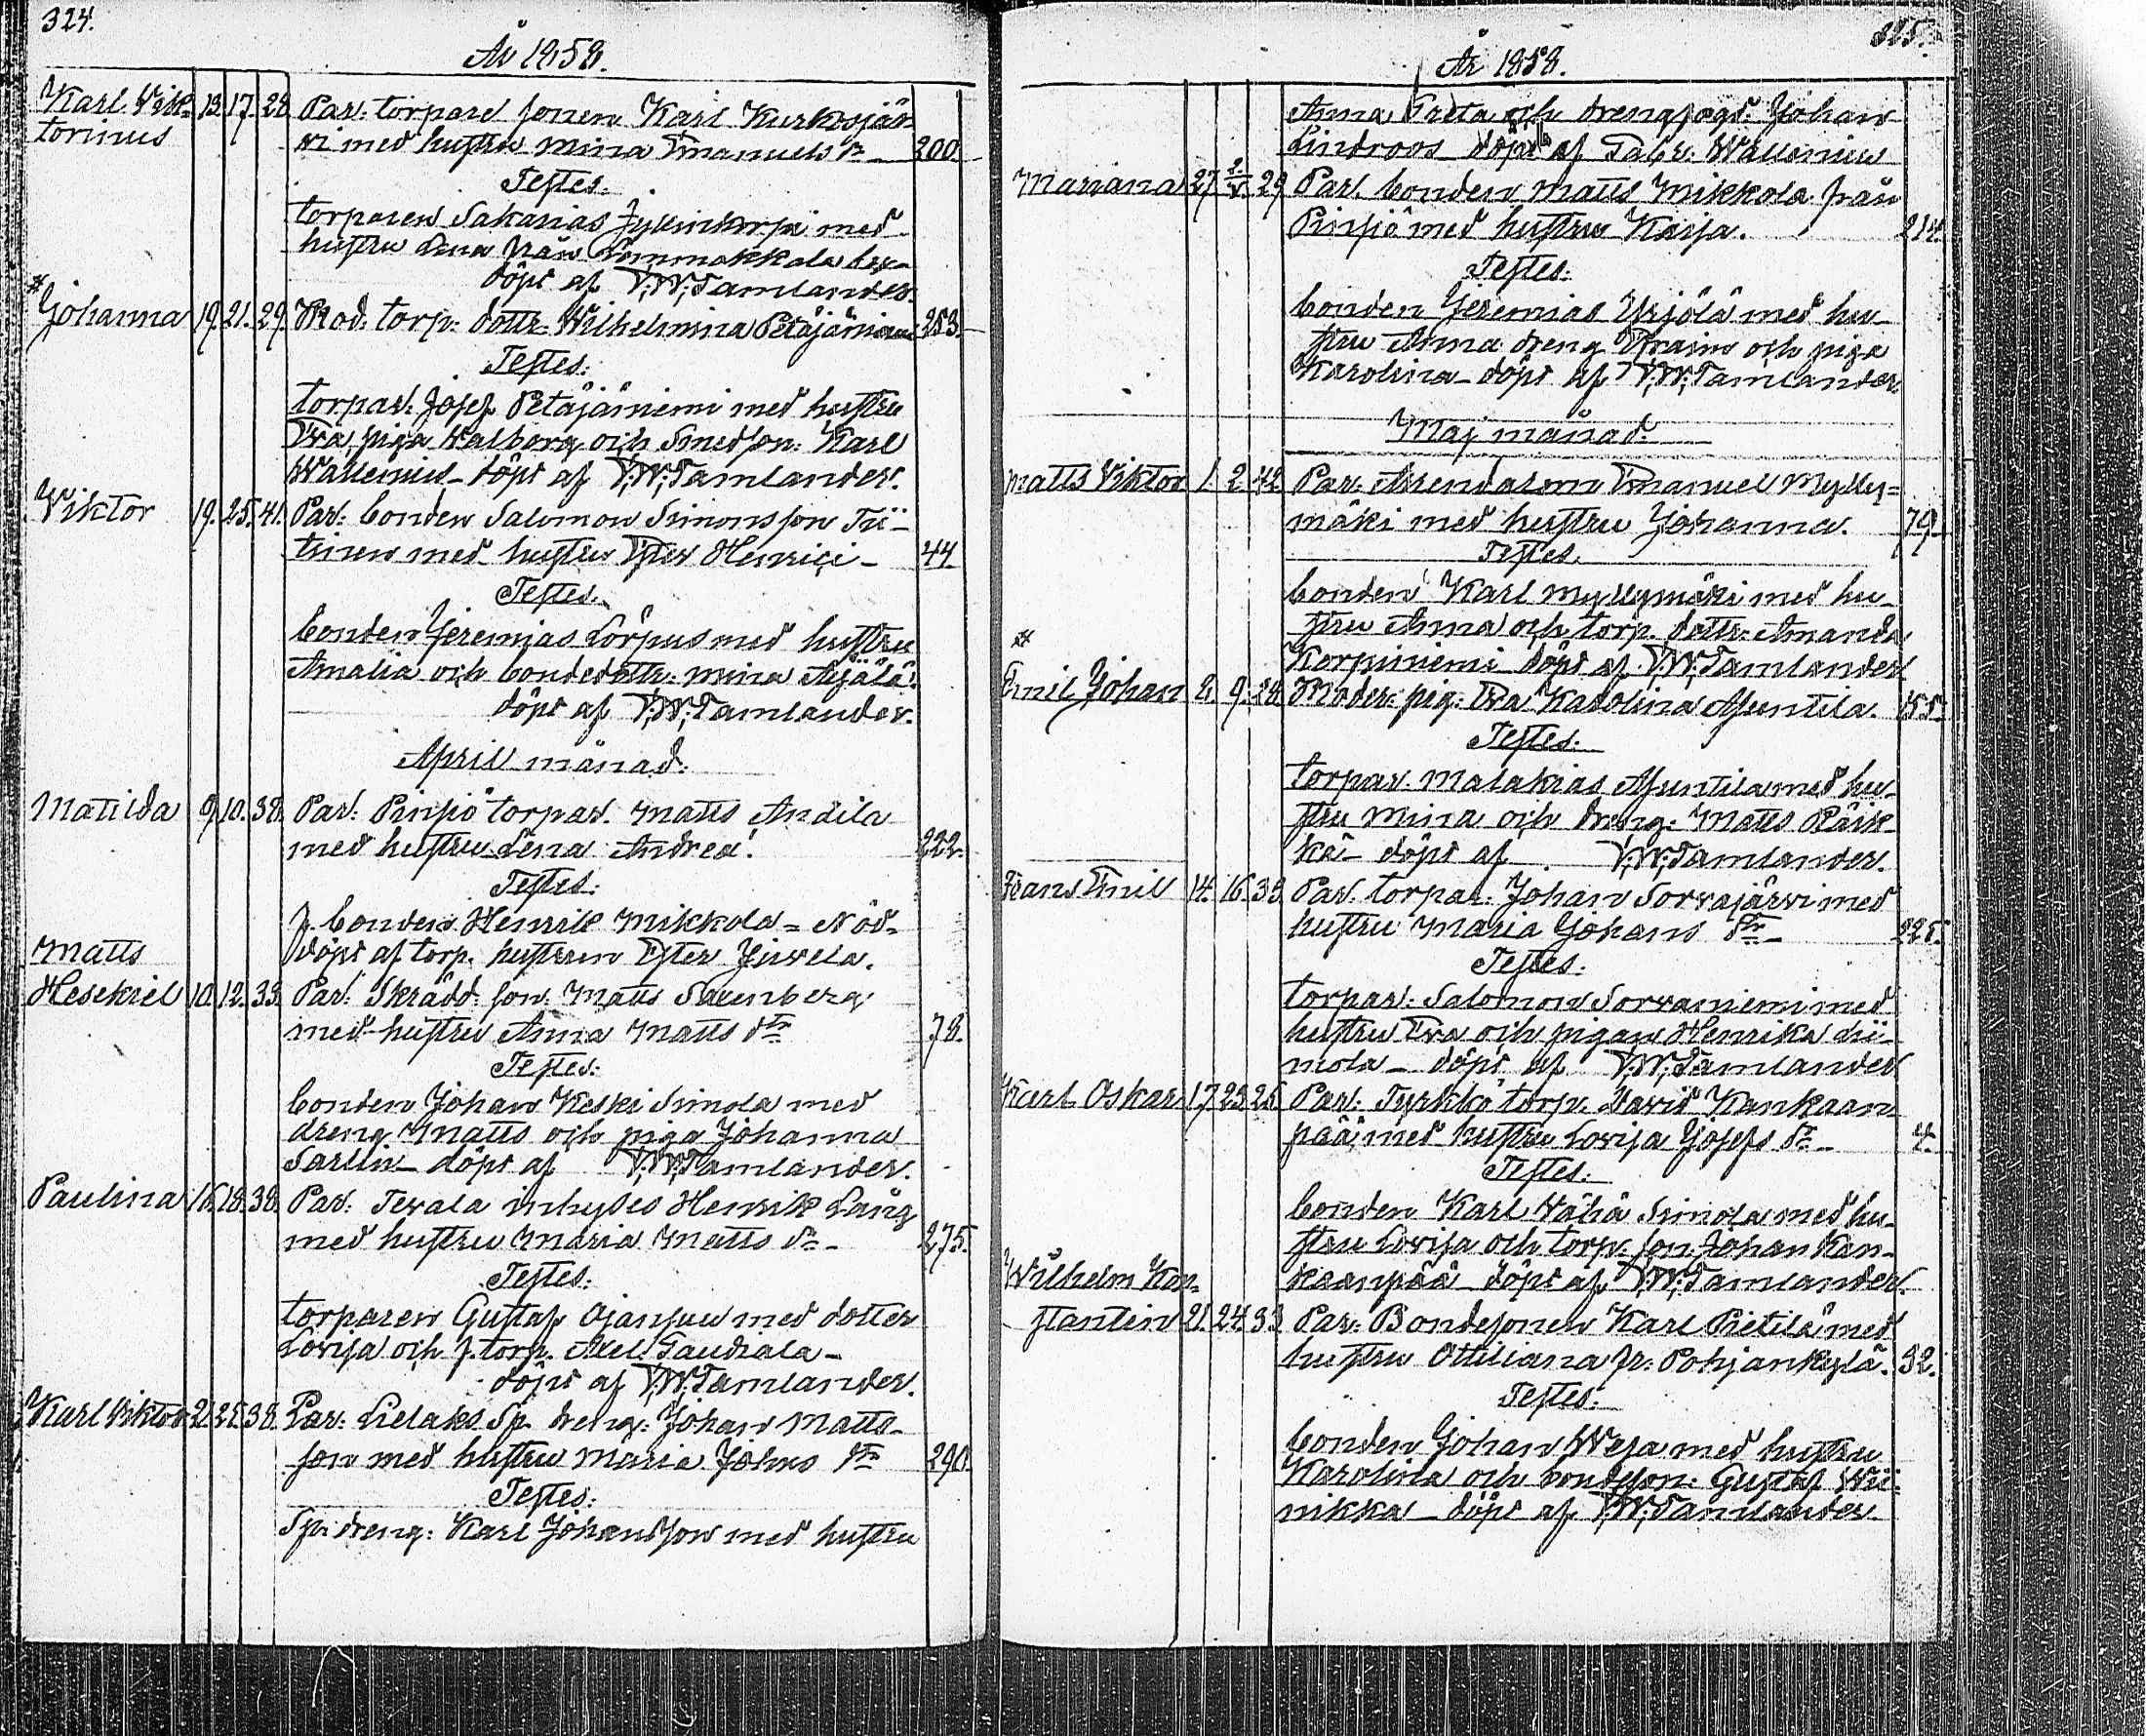 324.
År 1858.
Karl Vik- 13. 17. 28. Par: torpare sonen Karl Kurkosjär-
torinus vi med hustru Mina Emanuels dr 200.
Testes:
torparen Sakarias med
hustru Lena från Lommakkala by-
döpt af V:W:Tamlander.
* Johanna 19. 21. 29. Mod: torp: dottr: Wilhelmina Petäjäniemi 253.
Testes:
torpar: Josef Petäjäniemi med hustru
Eva, piga Walborg och Smedson: Karl
Wallenius - döpt af V:W:Tamlander.
Viktor 19. 25. 41. Par: bonden Salomon Simonsson Tii-
trinen med hustru Ester Henrici - 44.
Testes:
bonden Jeremias Lörpus med hustru
Amalia och bondedottr: Mina Äijälä:
döpt af V:W:Tamlander.
April månad:
Matilda 9. 10. 38. Par: Pinsiö torpar. Matts Andila
med hustru Lena Andreä. 222.
Testes:
f. bonden Henrik Mikkola - Nöd-
döpt af torp. hustrun Ester Juvela.
Matts
Hesekiel 10. 12. 33. Par: Skrädd: son: Matts Salenberg
med hustru Anna Matts dtr 78.
Testes:
bonden Johan Keski Simola med
dreng Matts och piga Johanna
Sarlin - döpt af V:W:Tamlander.
Paulina 16. 18. 38. Par: Tevala inhyses Henrik Lång
med hustru Maria Matts dr - 275.
Testes:
torparen Gustaf Ojansuu med dotter
Lovisa och f. torp. Axel Gaudiala -
döpt af V:W:Tamlander.
Karl Viktor 21. 25. 38. Par: Lielaks Sp. dreng: Johan Matts-
son med hustru Maria Johns dtr 290.
Testes:
Sp. dreng: Karl Johansson med hustru
325.
År 1858.
Anna Greta och drengsogd: Johan
Lindroos döpt af Fabr: Wallenius
Mariana 27. 2/V. 29. Par. bonden Matts Mikkola från
Pinsiö med hustru Kaisa. 214.
Testes:
bonden Jeremias Yrjölä med hu-
stru Anna dreng Efraim och piga
Karolina - döpt af V:W:Tamlander
Maj månad:
Matts Viktor 1. 2. 42. Par: Arendatorn Emanuel Mylly-
mäki med hustru Johanna. 79.
Testes.
bonden Karl Myllymäki med hu-
stru Anna och torp. dottr: Amanda
Korpiniemi döpt af V:W:Tamlander
*
Emil Johan 2. 9. 28. Moder: pig: Eva Karolina Ajuntila. 155.
Testes:
torpar. Malakias Ajuntila med hu-
stru Mina och dreng: Matts Räik-
kä - döpt af V:W:Tamlander.
Frans Emil 14. 16. 33. Par. torpar: Johan Sorvajärvi med
hustru Maria Johans dtr - 225.
Testes:
torpar: Salomon Sorvaniemi med
hustru Eva och pigan Henrika Lii-
mola - döpt af V:W:Tamlander
Karl Oskar 17. 23. 25. Par: Tyrkkö torp. David Kankaan-
pää med hustru Lovisa Josefs dr - 4.
Testes:
bonden Karl Vähä Simola med hu-
stru Lovisa och torp: son: Johan Kan-
kaanpää döpt af V:W:Tamlander.
Wilhelm Kon-
stantin 21. 24. 33. Par: Bondesonen Karl Pietilä med
hustru Ottiliana fr: Pohjankylä. 32.
Testes:
bonden Johan Wesa med hustru
Karolina och bondson: Gustaf Wii-
nikka - döpt af V:W:Tamlander.